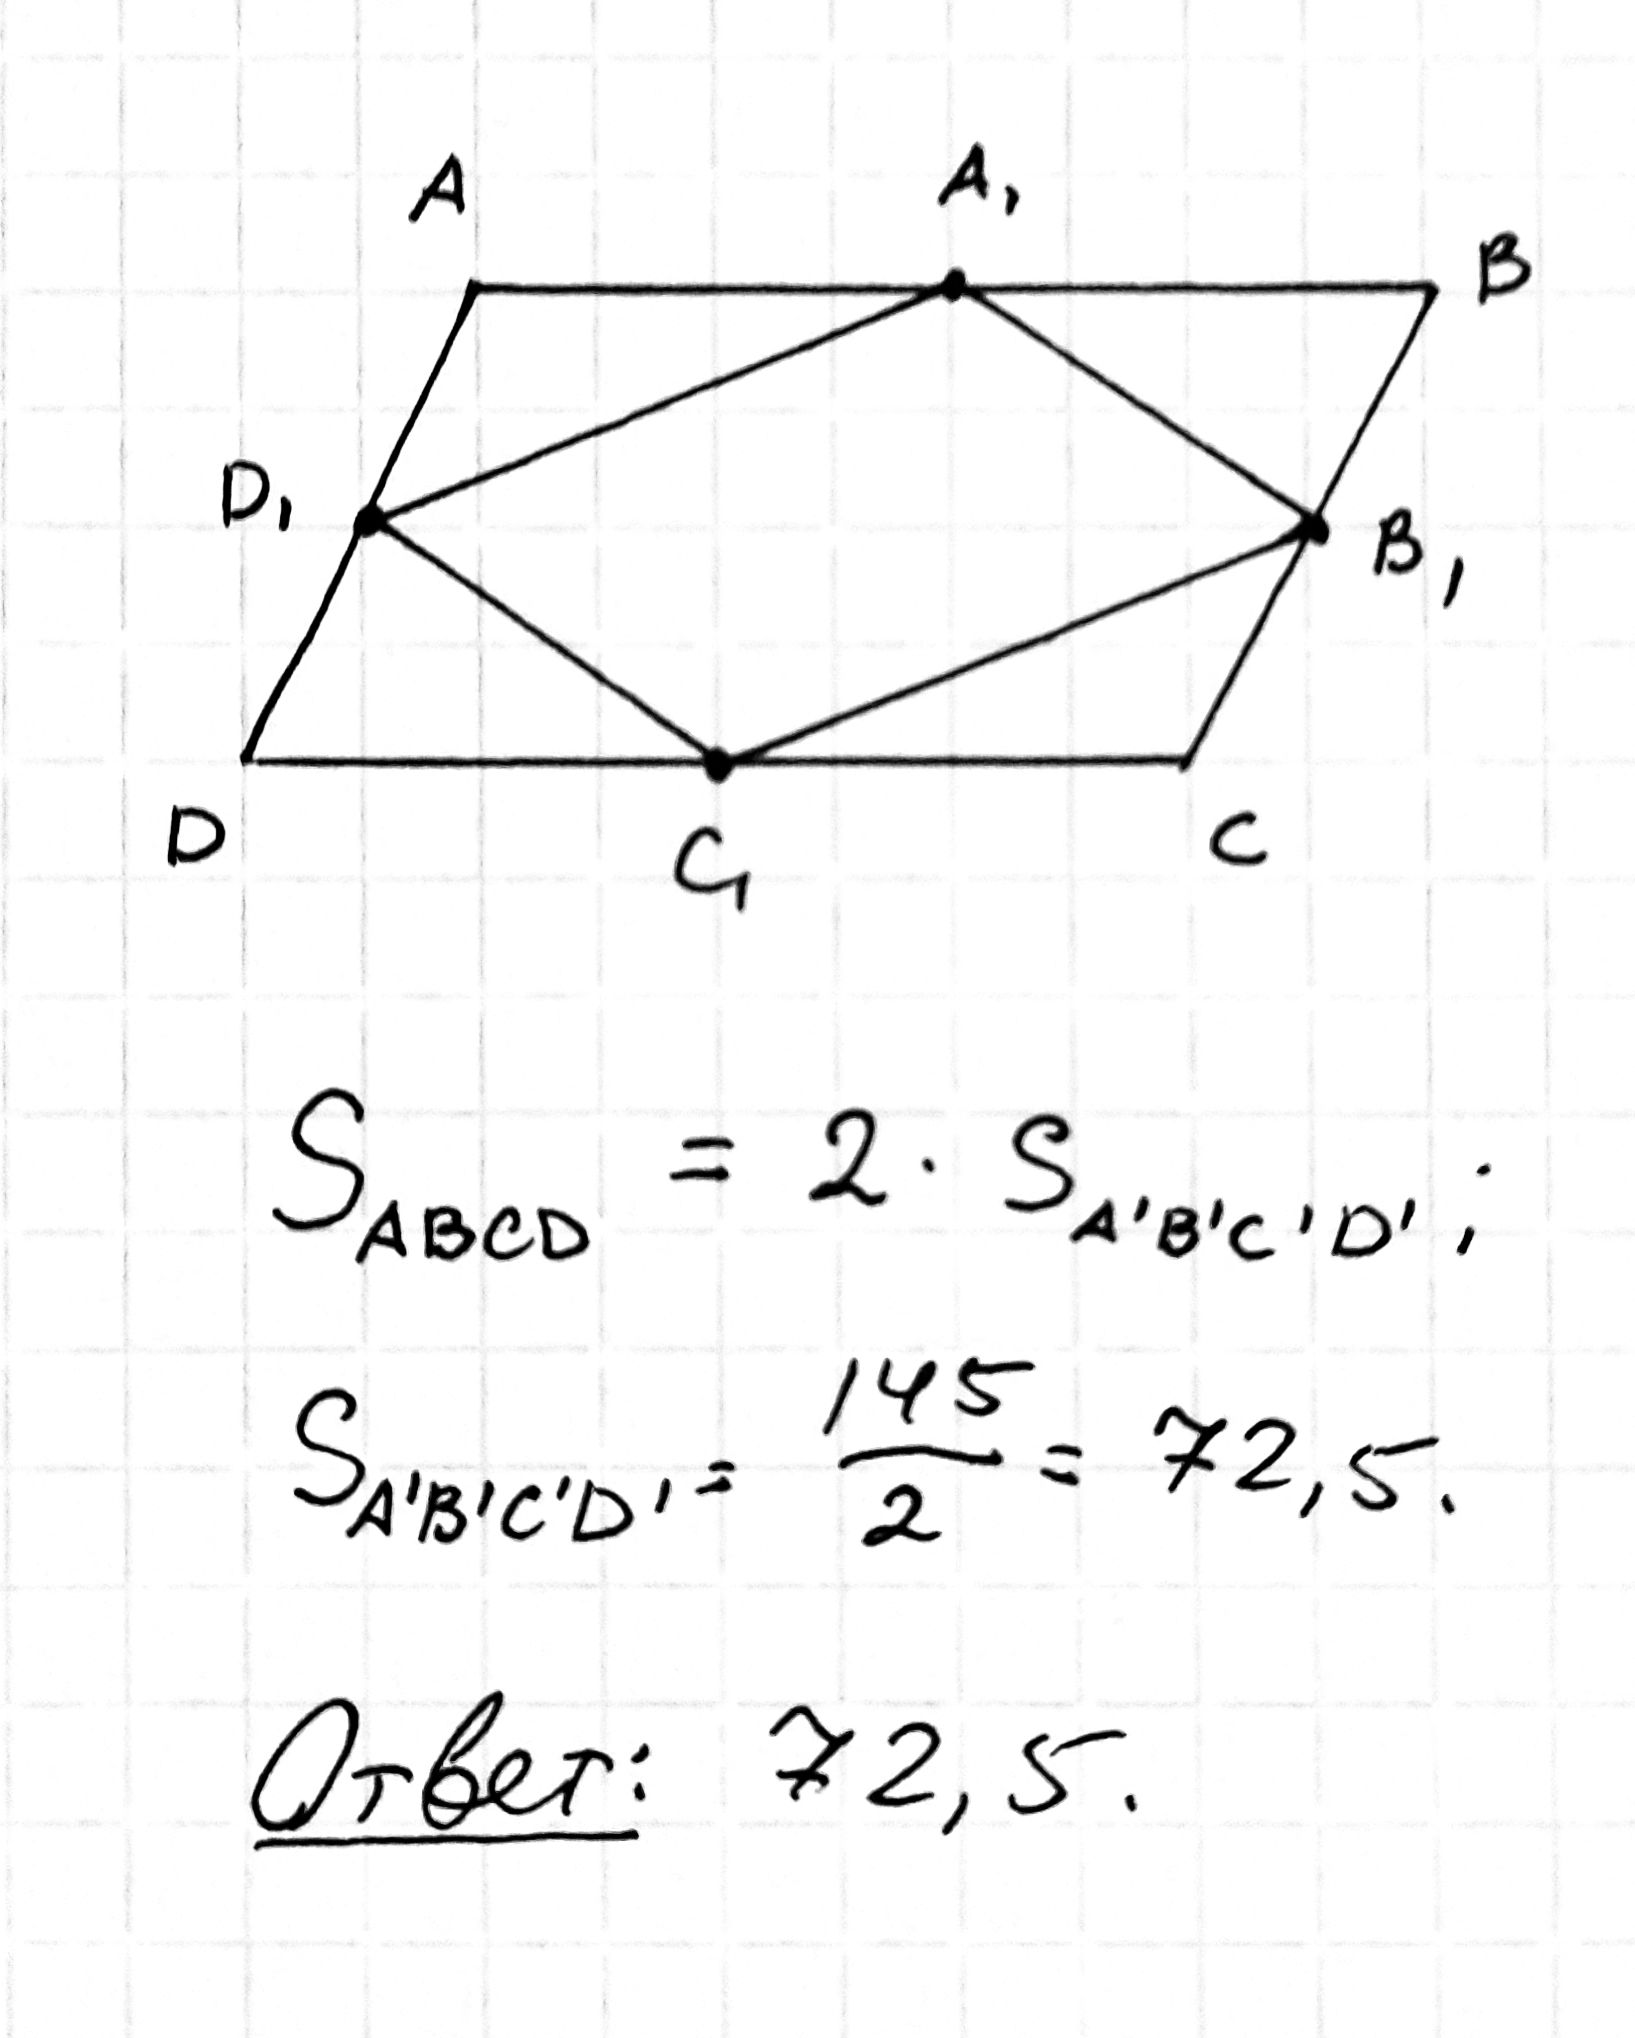 A A₁ B
D₁ B₁
D C₁ C
S_ABCD = 2 · S_A'B'C'D' ;
S_A'B'C'D' = 145/2 = 72,5.
Ответ: 72,5.